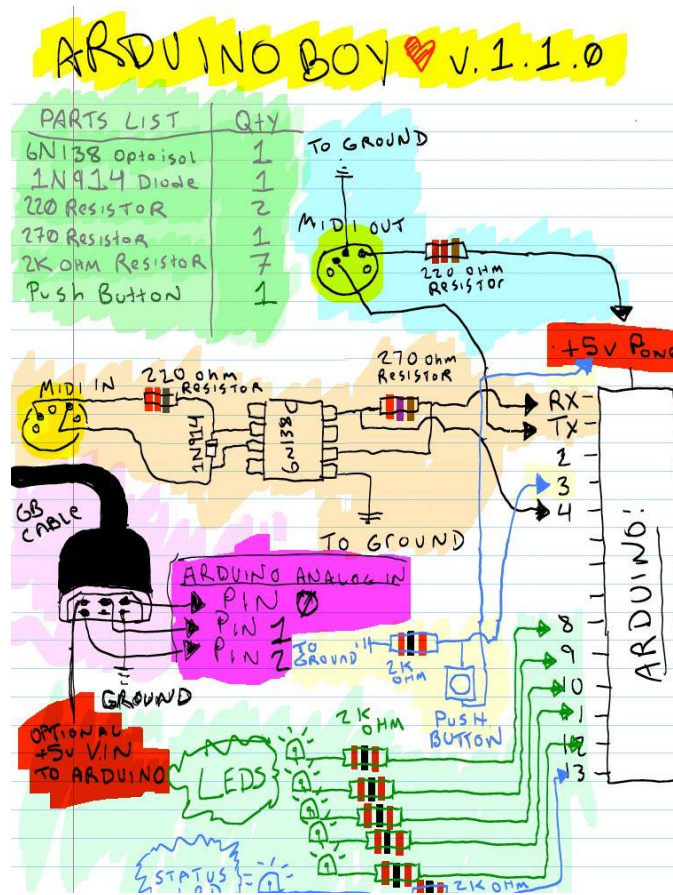 ARDUINO BOY ♥ v.1.1.0
PARTS LIST QTY
6N138 Optoisol 1
1N914 Diode 1
220 Resistor 2
270 Resistor 1
2K OHM Resistor 7
Push Button 1
TO GROUND
MIDI OUT
220 OHM
RESISTOR
+5V
MIDI IN
220 Ohm
RESISTOR
270 Ohm
RESISTOR
1N914
6N138
RX
TX
2
3
4
TO GROUND
GB
CABLE
ARDUINO ANALOG IN
PIN 0
PIN 1
PIN 2
GROUND
TO
GROUND
2K
OHM
PUSH
BUTTON
ARDUINO:
8
9
10
1
12
13
OPTIONAL
+5V V.IN
TO ARDUINO
LEDS
2K
OHM
STATUS
2K OHM